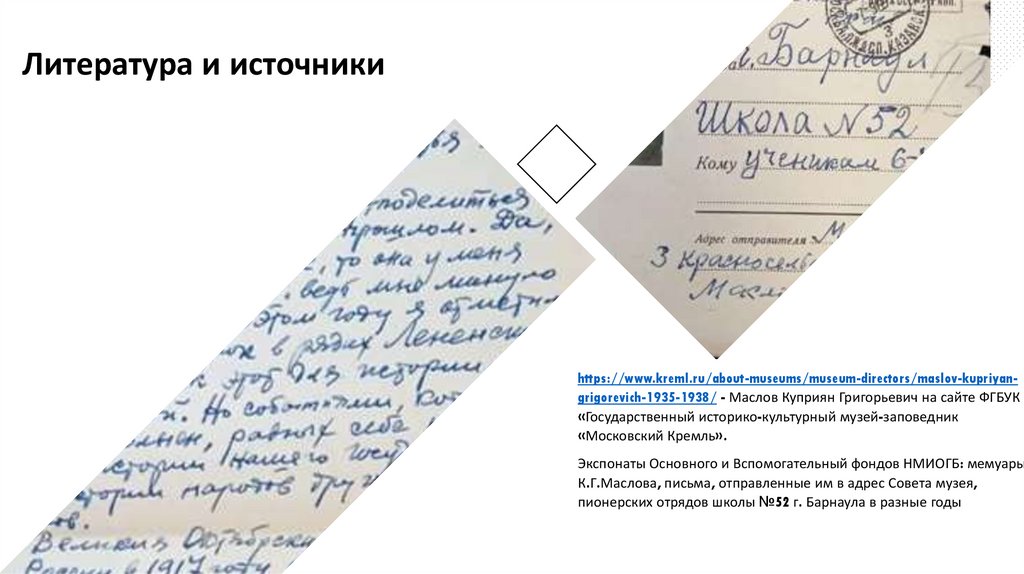 Литература и источники
г. Барнаул
Школа N 52
Кому ученикам 6-
Адрес отправителя М
3 Красносель
Масл
поделиться
прошлом. Да,
, то она у меня
. ведь мне минуло
этом году я отмети
в рядах Ленинск
этот для истории
й. Но событиями, ко
, равных себе
стории нашего госу
тории народов друг
ов.
Великая Октябрьска
России в 1917 году
https://www.kreml.ru/about-museums/museum-directors/maslov-kupriyan-
grigorevich-1935-1938/ - Маслов Куприян Григорьевич на сайте ФГБУК
«Государственный историко-культурный музей-заповедник
«Московский Кремль».
Экспонаты Основного и Вспомогательный фондов НМИОГБ: мемуары
К.Г.Маслова, письма, отправленные им в адрес Совета музея,
пионерских отрядов школы №52 г. Барнаула в разные годы